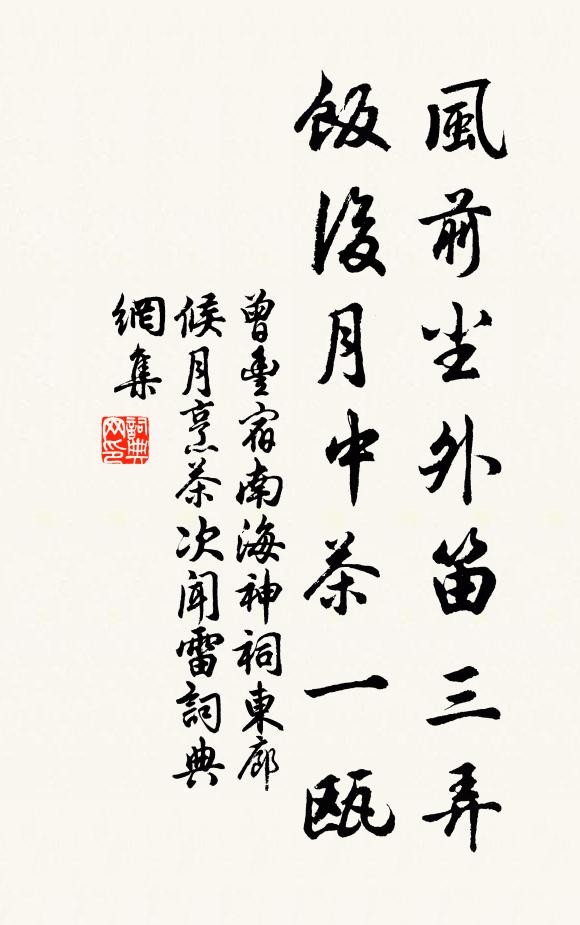 風前尘外笛三弄
飯後月中茶一瓯
曾豊宿南海神祠東廊
候月烹茶次闻雷詞典
網集
詞典
网印